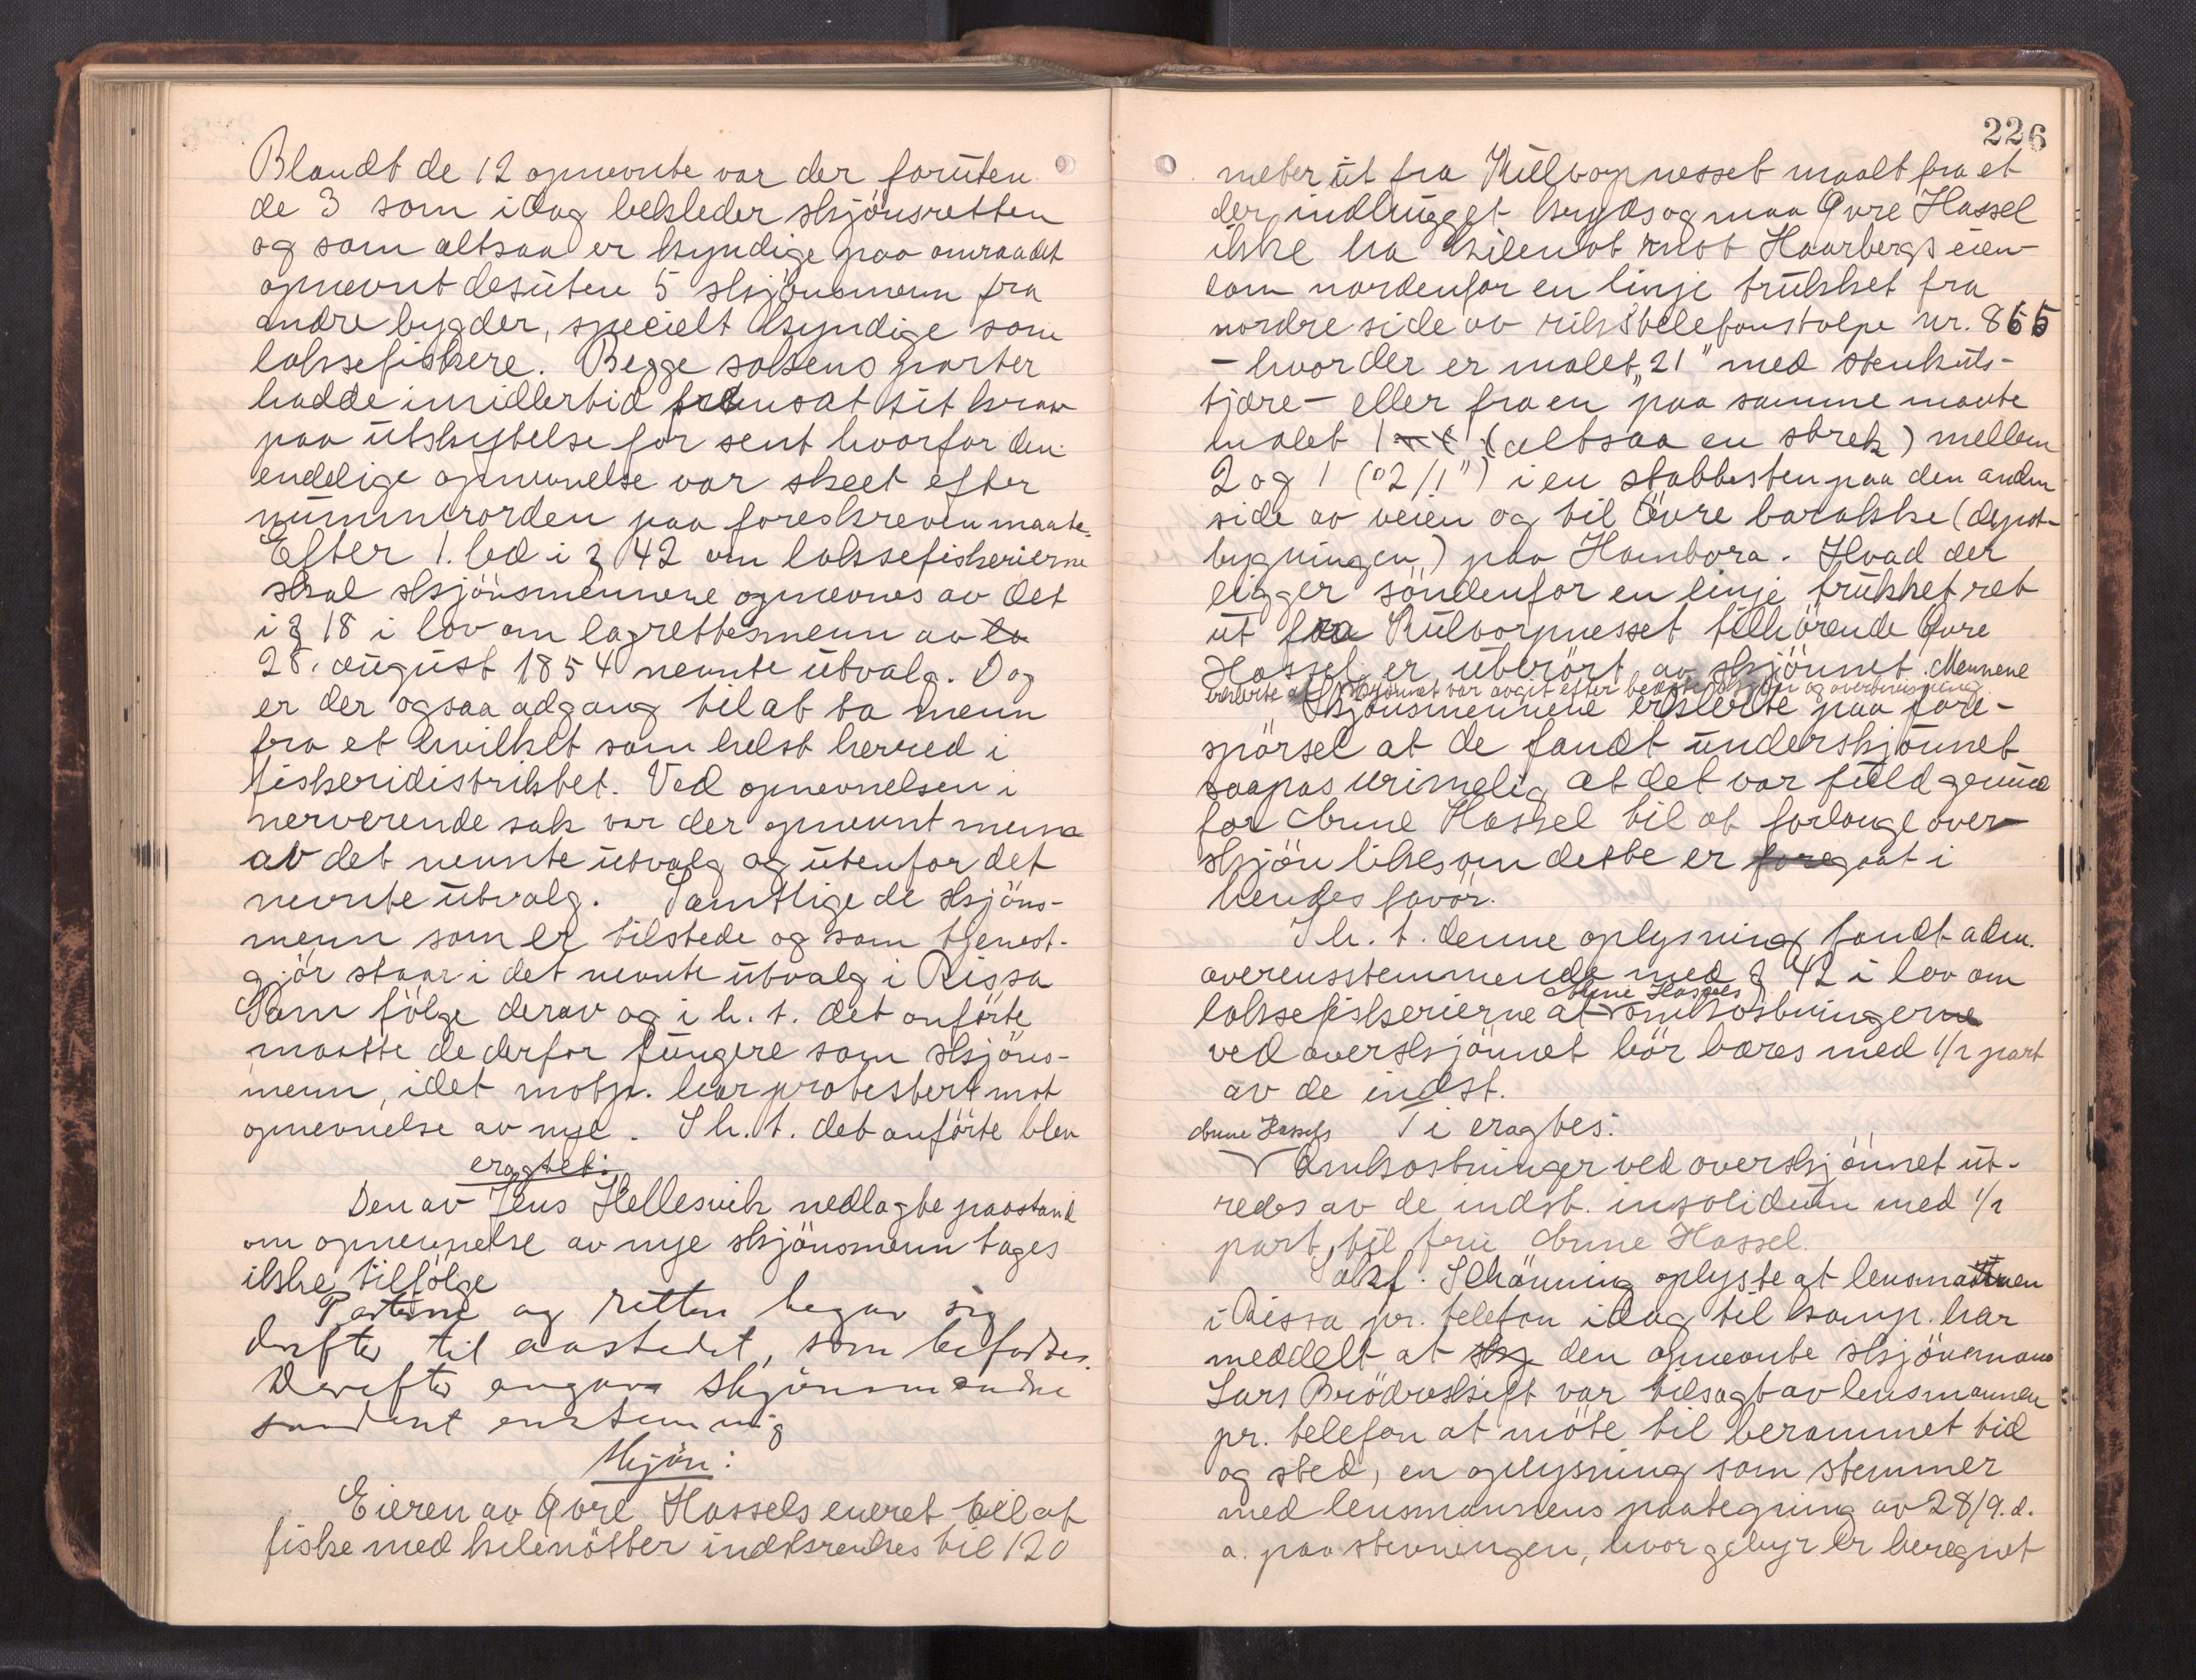 Blandt de 12 opnevnte var der foruten
de 3 som idag bekleder skjönsretten
og som altsaa er kyndige paa omraadet
opnevnt desuten 5 skjönsmenn fra
andre bygder, specielt kyndige som
laksefiskere. Begge sakens parter
hadde imidlertid fremsat sit krav
paa utskytelse for sent hvorfor den
endelige opnevnelse var skeet efter
nummerorden paa foreskreven maate.
Efter 1. led i § 42 om laksefiskerierne
skal skjönsmennene opnevnes av det
i § 18 i lov om lagrettesmenn av la
28. august 1854 nevnte utvalg. Dog
er der ogsaa adgang til at ta menn
fra et hvilket som helst herred i
fiskeridistriktet. Ved opnevnelsen i
nerverende sak var der opnevnt menn
av det nevnte utvalg og utenfor det
nevnte utvalg. Samtlige de skjöns-
menn som er tilstede og som tjenest-
gjör staar i det nevnte utvalg i Rissa
Som fölge derav og i h. t. det anförte
maatte de derfor fungere som skjöns-
menn, idet motp. har protestert mot
opnevnelse av nye. I h. t. det anförte blev
eragtet:
Den av Jens Hellesvik nedlagte paastand
om opnevnelse av nye skjönsmenn tages
ikke tilfölge
Parterne og retten begav sig
derefter til aastedet, som befaredes.
Derefter avgav skjönsmændene
saadant enstemmig
Skjön:
Eieren av Övre Hassels eneret til at
fiske med kilenötter indskrenkes til 120
226
meter ut fra Kullvapnesset maalt fra et
der indhugget kryds og maa Övre Hassel
ikke ha kilenot mot Haarbergs eien-
dom nordenfor en linje trukket fra
nordre side av rikstelefonstolpe nr. 865
- hvor der er malet "21" med stenkuls-
tjære - eller fra en paa samme maate
malet 1 (altsaa en strek) mellem
2 og 1 ("2/1") i en stabbesten paa den anden
side av veien og til övre barakke (depot-
bygningen) paa Hambora. Hvad der
ligger söndenfor en linje trukket ret
ut fra Kulvapnesset tilhörende Övre
Hassel er uberört av skjönnet. Mennene
at skjönnet var avgit efter bedste skjön og overbevisning
Skjönsmennene erklerte paa fore-
spörsel at de fandt underskjönnet
saapas urimelig at det var fuld grund
for Anne Hassel til at forlange over-
skjön likesom dette er foregaat i
hendes favör.
I h. t. denne oplysning fandt adm.
overensstemmende med § 42 i lov om
laksefiskerierne at Anne Hassels omkostningerne
ved overskjönnet bör bæres med 1/2 part
av de indst.
Ti eragtes:
Anne Hassels
Omkostninger ved overskjönnet ut-
redes av de indst. insolidum med 1/2
part til fru Anne Hassel.
Sakf. Schönning oplyste at lensmannen
i Rissa pr. telefon idag til komp. har
meddelt at skj den opnevnte skjönsmann
Lars Brödreskift var tilsagt av lensmannen
pr. telefon at möte til berammet tid
og sted, en oplysning som stemmer
med lensmannens paategning av 28/9. d.
a. paa stevningen, hvor gebyr er beregnet